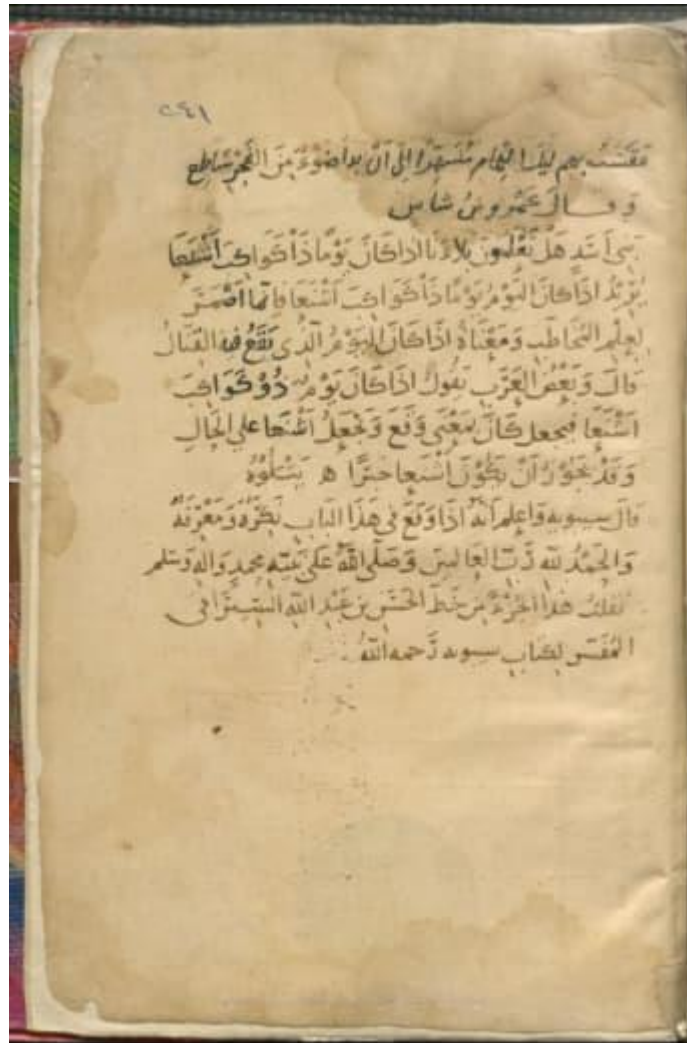 ٢٤١
بهم ليل التمام مسهدا الى أن بدا ضوء من الفجر ساطع
وقال عمرو بن شاس
بني أسد هل تعلمون بلاءنا اذا كان يوما ذا كواكب أشنعا
يريد اذا كان اليوم يوما ذا كواكب أشنعا فإنما أضمر
لعلم المخاطب ومعناه اذا كان اليوم الذي يقع فيه القتال
قال وبعض العرب يقول اذا كان يوم ذو كواكب
أشنعا فيجعل كان بمعنى وقع ويجعل أشنعا على الحال
وقد يجوز أن يكون أشنعا خبرا ه يتلوه
قال سيبويه واعلم أنه اذا وقع في هذا الباب نكرة ومعرفة
والحمد لله رب العالمين وصلى الله على نبيه محمد واله وسلم
نقلت هذا الجزء من خط الحسن بن عبد الله السيرافي
المفسر لكتاب سيبويه رحمه الله